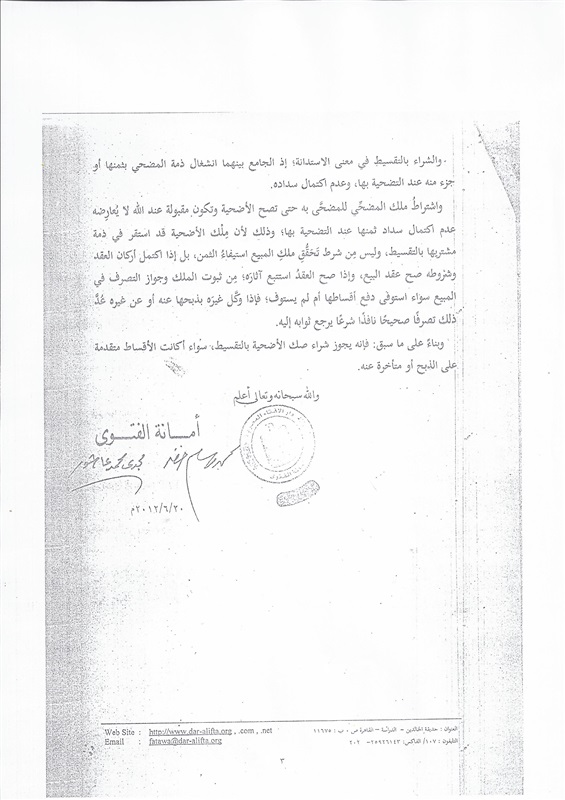 والشراء بالتقسيط في معنى الاستدانة؛ إذ الجامع بينهما انشغال ذمة المضحي بثمنها أو
جزء منه عند التضحية بها، وعدم اكتمال سداده.
واشتراطُ ملك المضحِّي للمضحَّى به حتى تصح الأضحية وتكون مقبولة عند الله لا يُعارِضه
عدم اكتمال سداد ثمنها عند التضحية بها؛ وذلك لأن مِلْك الأضحية قد استقر في ذمة
مشتريها بالتقسيط، وليس مِن شرط تَحَقُّقِ ملكِ المبيع استيفاءُ الثمن، بل إذا اكتمل أركان العقد
وشروطه صح عقد البيع، وإذا صح العقدُ استتبع آثارَه؛ مِن ثبوت الملك وجواز التصرف في
المبيع سواء استوفى دفع أقساطها أم لم يستوف؛ فإذا وكَّل غيرَه بذبحها عنه أو عن غيره عُدَّ
ذلك تصرفًا صحيحًا نافذًا شرعًا يرجع ثوابه إليه.
وبناءً على ما سبق: فإنه يجوز شراء صك الأضحية بالتقسيط، سواء أكانت الأقساط متقدمة
على الذبح أو متأخرة عنه.
والله سبحانه وتعالى أعلم
أمـــانة الفتــوى
٢٠١٢/٦/٢٠م
العنوان : حديقة الخالدين – الدراسة – القاهرة ص . ب : ١١٦٧٥
Web Site : http://www.dar-alifta.org , .com , .net
التليفون : ١٠٧/ الفاكس: ٢٥٩٢٦١٤٣– ٢٠٢
Email : fatawa@dar-alifta.org
٣